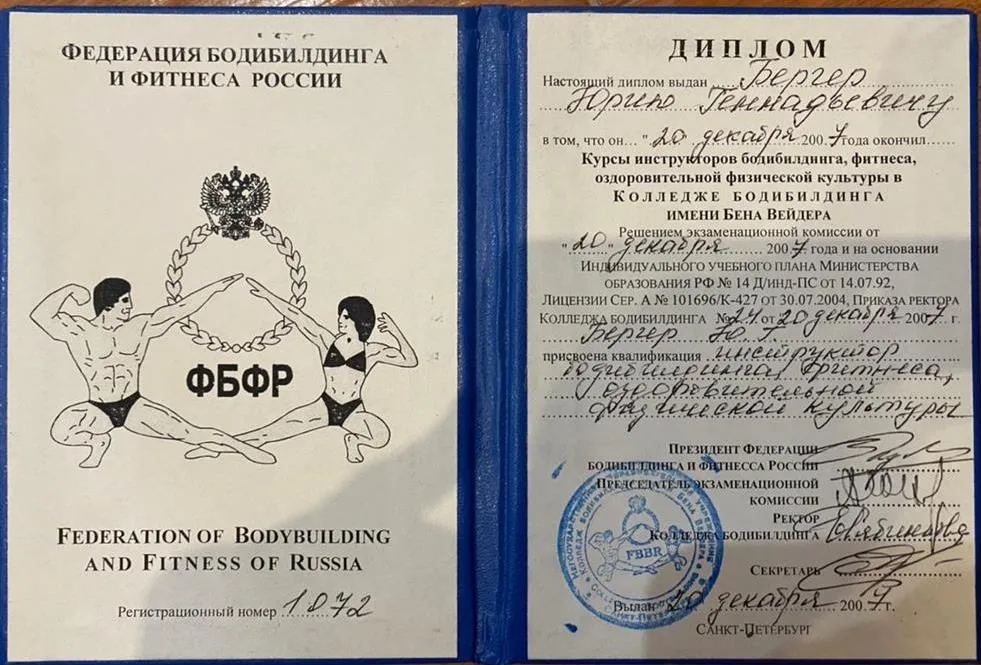 ФЕДЕРАЦИЯ БОДИБИЛДИНГА
И ФИТНЕСА РОССИИ
ФБФР
FEDERATION OF BODYBUILDING
AND FITNESS OF RUSSIA
Регистрационный номер 1072
ДИПЛОМ
Настоящий диплом выдан Бергер
Юрию Геннадьевичу
в том, что он... "20 декабря 2007 года окончил......
Курсы инструкторов бодибилдинга, фитнеса,
оздоровительной физической культуры в
КОЛЛЕДЖЕ БОДИБИЛДИНГА
ИМЕНИ БЕНА ВЕЙДЕРА
Решением экзаменационной комиссии от
"20" декабря 2007 года и на основании
ИНДИВИДУАЛЬНОГО УЧЕБНОГО ПЛАНА МИНИСТЕРСТВА
ОБРАЗОВАНИЯ РФ № 14 Д/ИНД-ПС ОТ 14.07.92,
ЛИЦЕНЗИИ СЕР. А № 101696/К-427 ОТ 30.07.2004, ПРИКАЗА РЕКТОРА
КОЛЛЕДЖА БОДИБИЛДИНГА №24 от 20 декабря 2007 г.
Бергер Ю. Г.
присвоена квалификация инструктор
бодибилдинга, фитнеса,
оздоровительной
физической культуры
ПРЕЗИДЕНТ ФЕДЕРАЦИИ
БОДИБИЛДИНГА И ФИТНЕССА РОССИИ
ПРЕДСЕДАТЕЛЬ ЭКЗАМЕНАЦИОННОЙ
КОМИССИИ
РЕКТОР
КОЛЛЕДЖА БОДИБИЛДИНГА
СЕКРЕТАРЬ
Выдан 20 декабря 2007 г.
САНКТ-ПЕТЕРБУРГ
FBBR